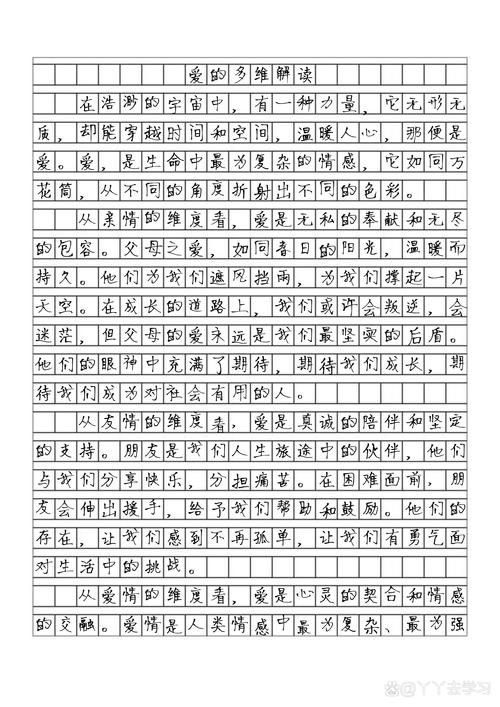 爱的多维解读
在浩渺的宇宙中，有一种力量，它无形无
质，却能穿越时间和空间，温暖人心，那便是
爱。爱，是生命中最为复杂的情感，它如同万
花筒，从不同的角度折射出不同的色彩。
从亲情的维度看，爱是无私的奉献和无尽
的包容。父母之爱，如同春日的阳光，温暖而
持久。他们为我们遮风挡雨，为我们撑起一片
天空。在成长的道路上，我们或许会叛逆，会
迷茫，但父母的爱永远是我们最坚实的后盾。
他们的眼神中充满了期待，期待我们成长，期
待我们成为对社会有用的人。
从友情的维度看，爱是真诚的陪伴和坚定
的支持。朋友是我们人生旅途中的伙伴，他们
与我们分享快乐，分担痛苦。在困难面前，朋
友会伸出援手，给予我们帮助和鼓励。他们的
存在，让我们感到不再孤单，让我们有勇气面
对生活中的挑战。
从爱情的维度看，爱是心灵的契合和情感
的交融。爱情是人类情感中最为复杂、最为强
@丫丫去学习